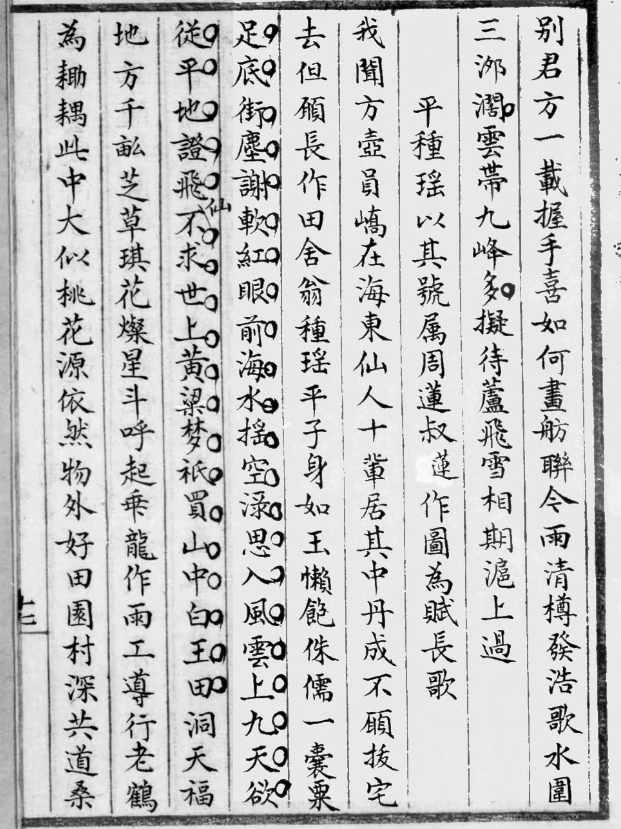 别君方一載握手喜如何畫舫聯今雨清樽發浩歌水圍
三泖濶雲帶九峰多擬待蘆飛雪相期滬上過
平種瑶以其號属周蓮叔蓮作圖為賦長歌
我聞方壺員嶠在海東仙人十輩居其中丹成不願拔宅
去但願長作田舍翁種瑶平子身如玉懶飽侏儒一囊粟
足底街塵謝軟紅眼前海水揺空渌思入風雲上九天欲
從平地證飛仙不求世上黃粱梦祇買山中白玉田洞天福
地方千畝芝草琪花燦星斗呼起乗龍作雨工導行老鶴
為耡耦此中大似桃花源依然物外好田園村深共道桑
十二